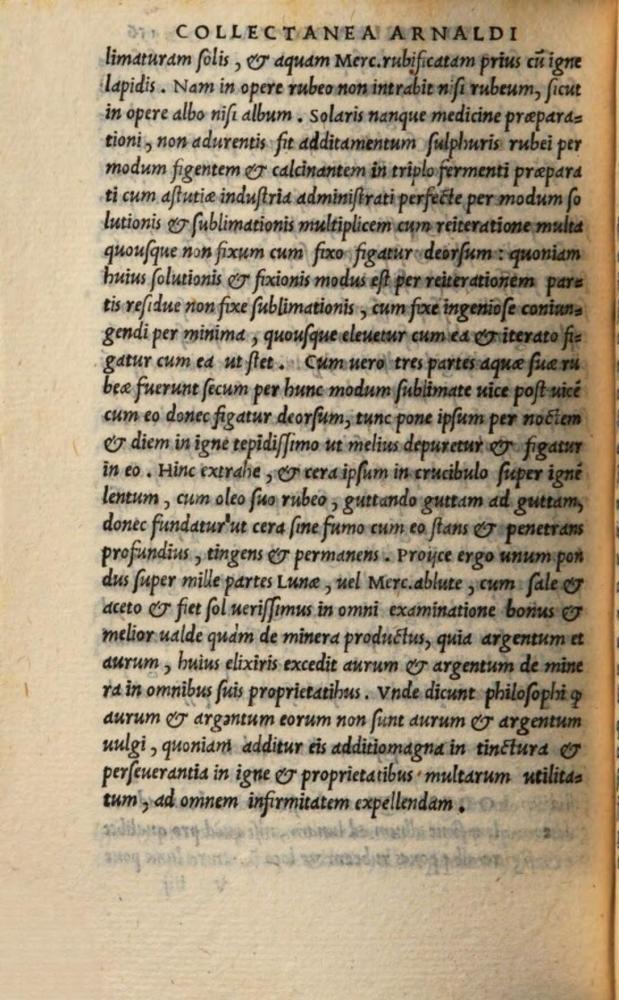 COLLECTANEA ARNALDI
limaturam ſolis, & aquam Merc.rubificatam prius cũ igne
lapidis. Nam in opere rubeo non intrabit niſi rubeum, ſicut
in opere albo niſi album. Solaris nanque medicine præpara=
tioni, non adurentis fit additamentum ſulphuris rubei per
modum figentem & calcinantem in triplo fermenti præpara
ti cum aſtutiæ induſtria adminiſtrati perfecte per modum ſo
lutionis & ſublimationis multiplicem cum reiteratione multa
quouſque non fixum cum fixo figatur deorſum: quoniam
huius ſolutionis & fixionis modus eſt per reiterationem par=
tis reſidue non fixe ſublimationis, cum fixe ingenioſe coniun=
gendi per minima, quouſque eleuetur cum ea & iterato fi=
gatur cum ea ut ſtet. Cum uero tres partes aquæ ſuæ ru
beæ fuerunt ſecum per hunc modum ſublimate uice poſt uicẽ
cum eo donec figatur deorſum, tunc pone ipſum per noctem
& diem in igne tepidiſſimo ut melius depuretur & figatur
in eo. Hinc extrahe, & cera ipſum in crucibulo ſuper ignẽ
lentum, cum oleo ſuo rubeo, guttando guttam ad guttam,
donec fundatur ut cera ſine fumo cum eo ſtans & penetrans
profundius, tingens & permanens. Proijce ergo unum pon
dus ſuper mille partes Lunæ, uel Merc.ablute, cum ſale &
aceto & fiet ſol ueriſſimus in omni examinatione bonus &
melior ualde quàm de minera productus, quia argentum et
aurum, huius elixiris excedit aurum & argentum de mine
ra in omnibus ſuis proprietatibus. Vnde dicunt philoſophi ꝙ
aurum & argentum eorum non ſunt aurum & argentum
uulgi, quoniam additur eis additiomagna in tinctura &
perſeuerantia in igne & proprietatibus multarum utilita=
tum, ad omnem infirmitatem expellendam.